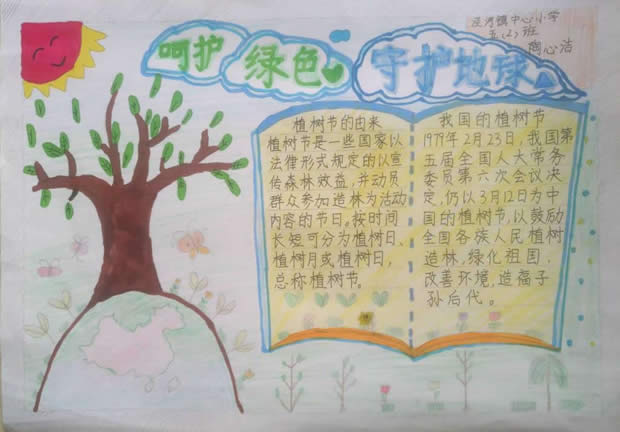 呵护绿色
守护地球
河镇中心小学
五(2)班
陶心洁
植树节的由来
植树节是一些国家以
法律形式规定的以宣
传森林效益,并动员
群众参加造林为活动
内容的节日。按时间
长短可分为植树日、
植树月或植树日,
总称植树节。
我国的植树节
1979年2月23日,我国第
五届全国人大常务
委员第六次会议决
定,仍以3月12日为中
国的植树节,以鼓励
全国各族人民植树
造林,绿化祖国,
改善环境,造福子
孙后代。